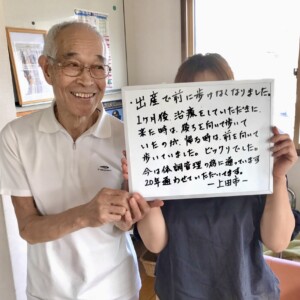 ・出産で前に歩けなくなりました。
1ヶ月後 治療をしていただきに
来た時は、後ろを向いて歩いて
いたのが、帰る時は、前を向いて
歩いていました。ビックリでした。
今は体調管理の為に通っています
20年通わせていただいてます。
－上田市－